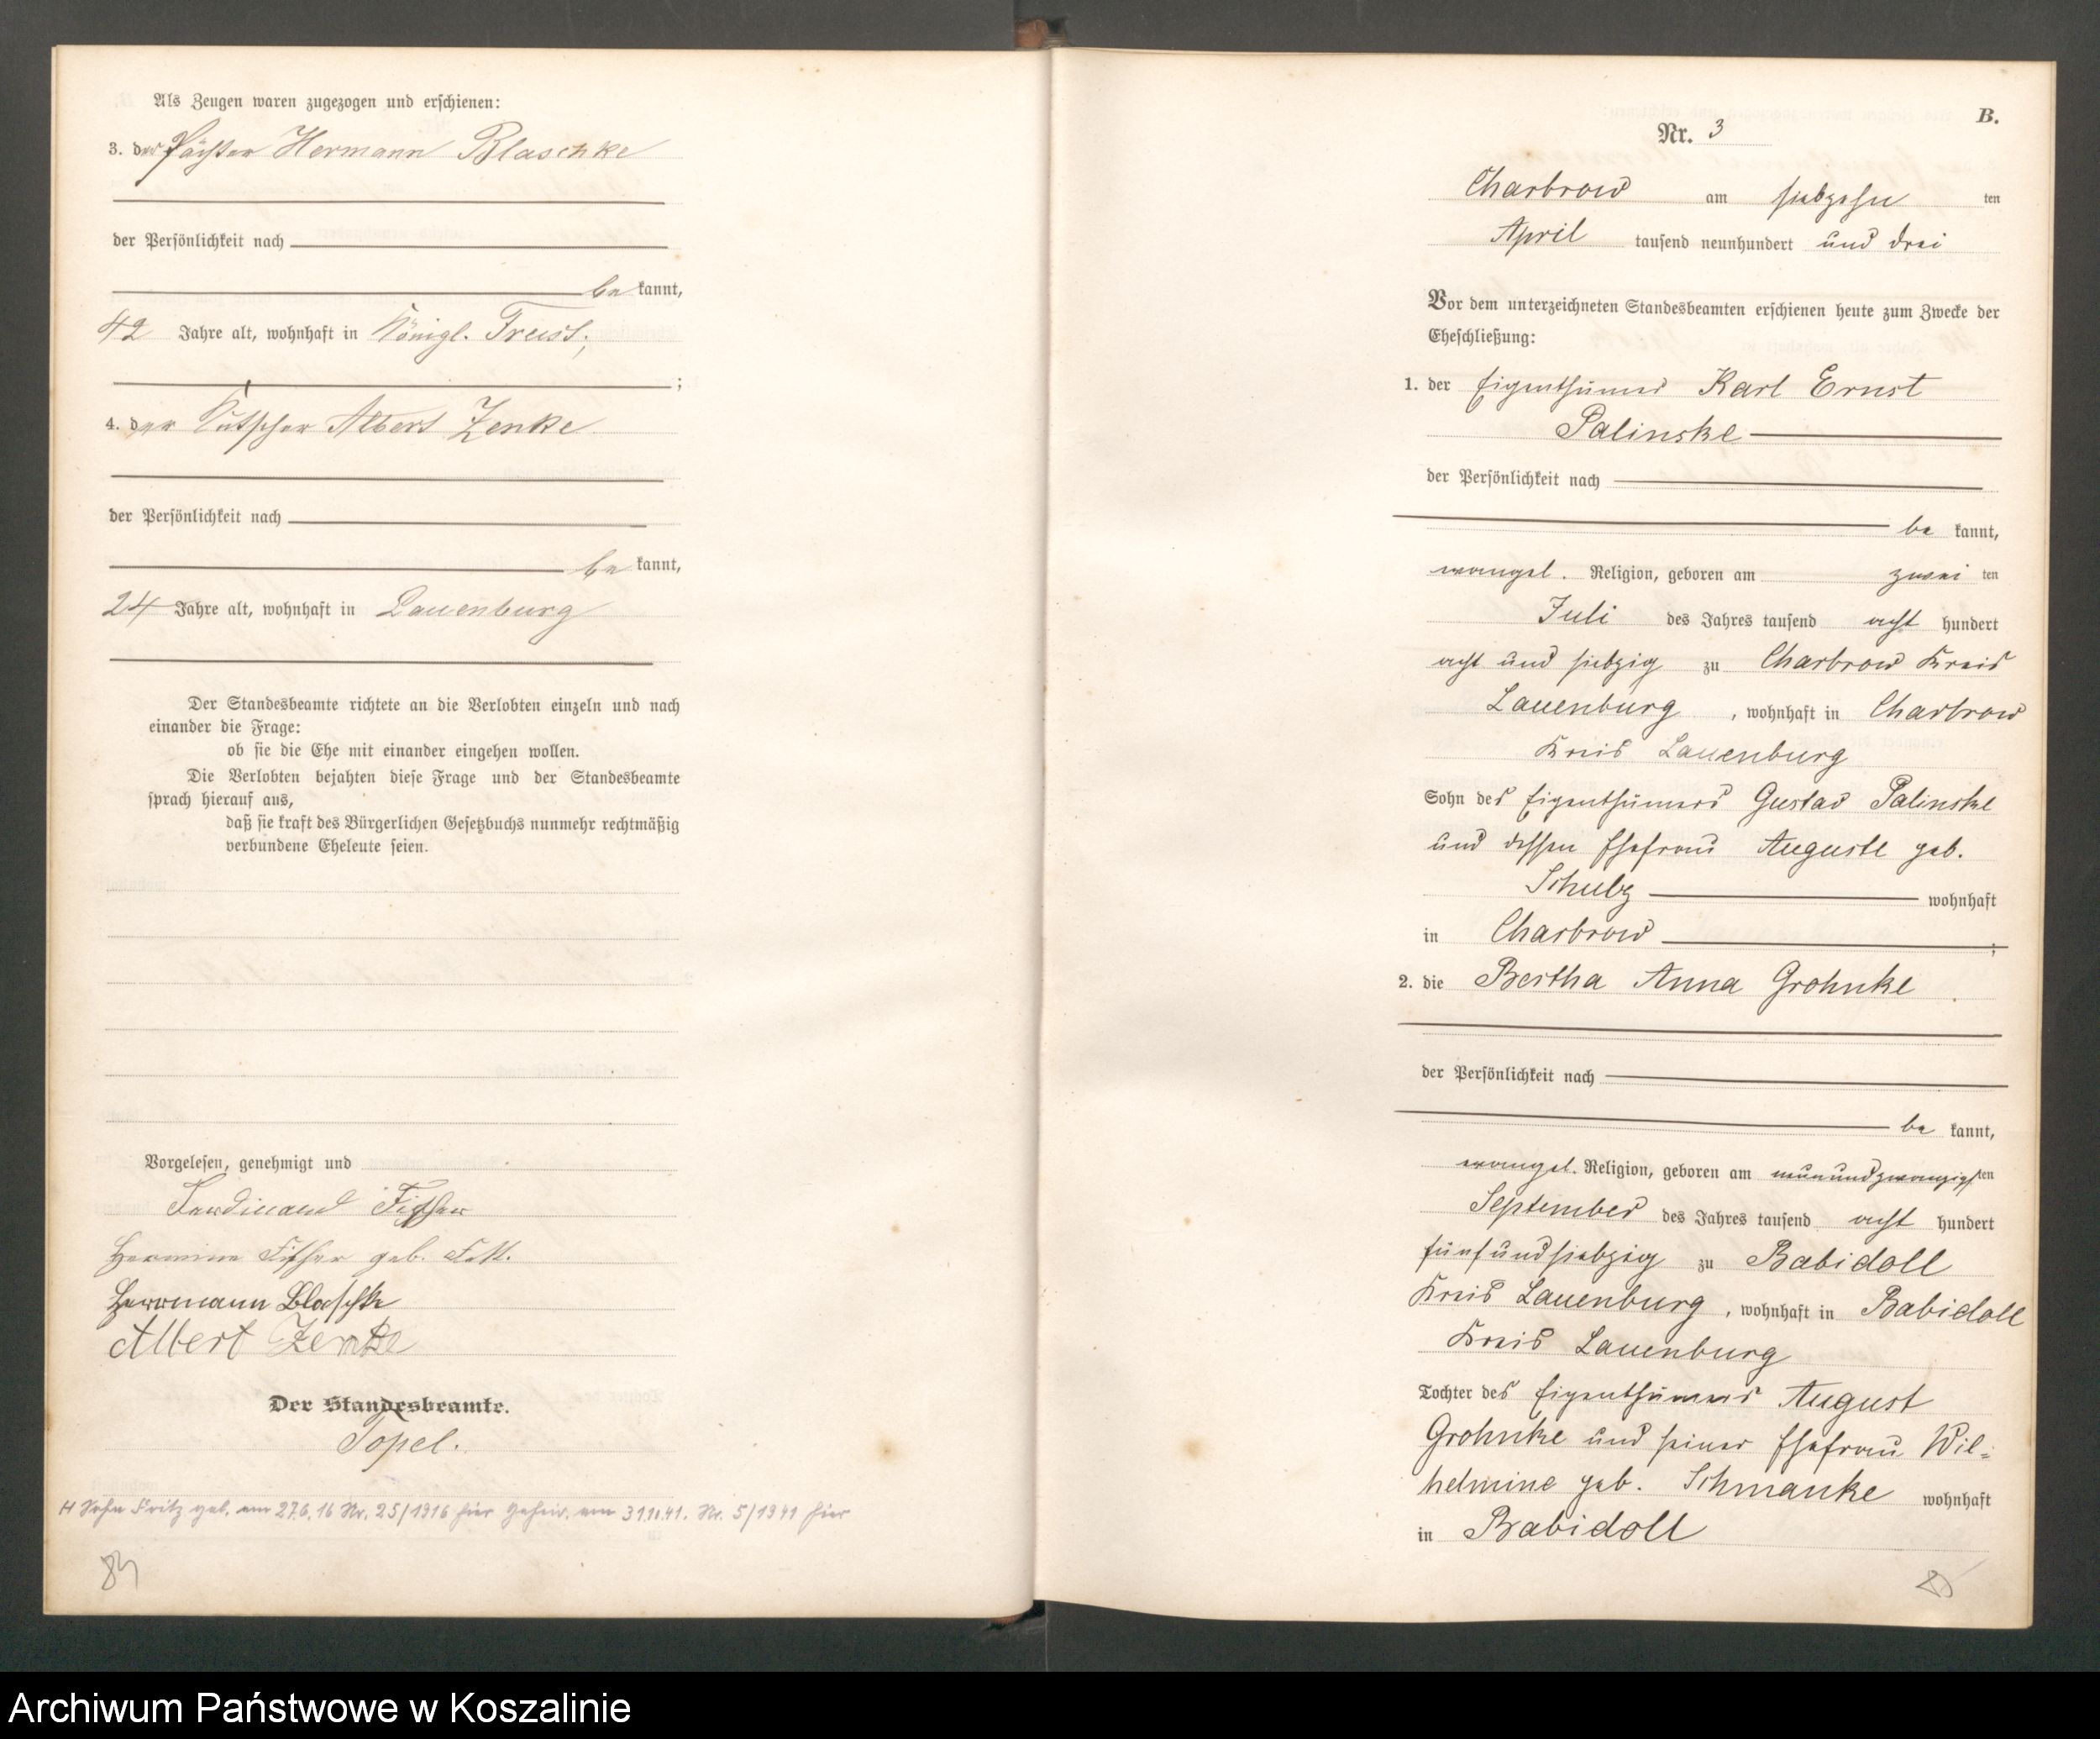 Als Zeugen waren zugezogen und erschienen:
3. der Pächter Hermann Blaschke
der Persönlichkeit nach
be kannt,
42 Jahre alt, wohnhaft in Königl. Freist.;
;
4. der Kutscher Albert Zenke
der Persönlichkeit nach
be kannt,
24 Jahre alt, wohnhaft in Lauenburg
Der Standesbeamte richtete an die Verlobten einzeln und nach
einander die Frage:
ob sie die Ehe mit einander eingehen wollen.
Die Verlobten bejahten diese Frage und der Standesbeamte
sprach hierauf aus,
daß sie kraft des Bürgerlichen Gesetzbuchs nunmehr rechtmäßig
verbundene Eheleute seien.
Vorgelesen, genehmigt und
Ferdinand Fischer
Hermine Fischer geb.
Herrmann Blaschke
Albert Zenke
Der Standesbeamte.
Topel.
Sohn Fritz geb. am 27.6.16 Nr. 25/1916 hier Geheir. am 31.10.41. Nr. 5/1941 hier
B.
Nr. 3
Charbrow am siebzehn ten
April tausend neunhundert und drei
Vor dem unterzeichneten Standesbeamten erschienen heute zum Zwecke der
Eheschließung:
1. der Eigenthümer Karl Ernst
Palinske
der Persönlichkeit nach
be kannt,
evangel. Religion, geboren am zwei ten
Juli des Jahres tausend acht hundert
acht und siebzig zu Charbrow Kreis
Lauenburg , wohnhaft in Charbrow
Kreis Lauenburg
Sohn des Eigenthümers Gustav Palinske
und dessen Ehefrau Auguste geb.
Schulz wohnhaft
in Charbrow ;
2. die Bertha Anna Grohnke
der Persönlichkeit nach
be kannt,
evangel. Religion, geboren am neunundzwanzigsten
September des Jahres tausend acht hundert
fünfundsiebzig zu Babidoll
Kreis Lauenburg , wohnhaft in Babidoll
Kreis Lauenburg
Tochter des Eigenthümers August
Grohnke und seiner Ehefrau Wil-
helmine geb. Schmanke wohnhaft
in Babidoll
Archiwum Państwowe w Koszalinie